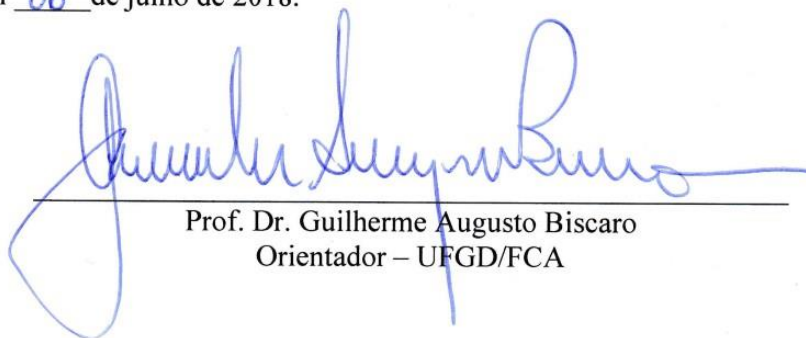 de julho de 2018.
Prof. Dr. Guilherme Augusto Biscaro
Orientador – UFGD/FCA